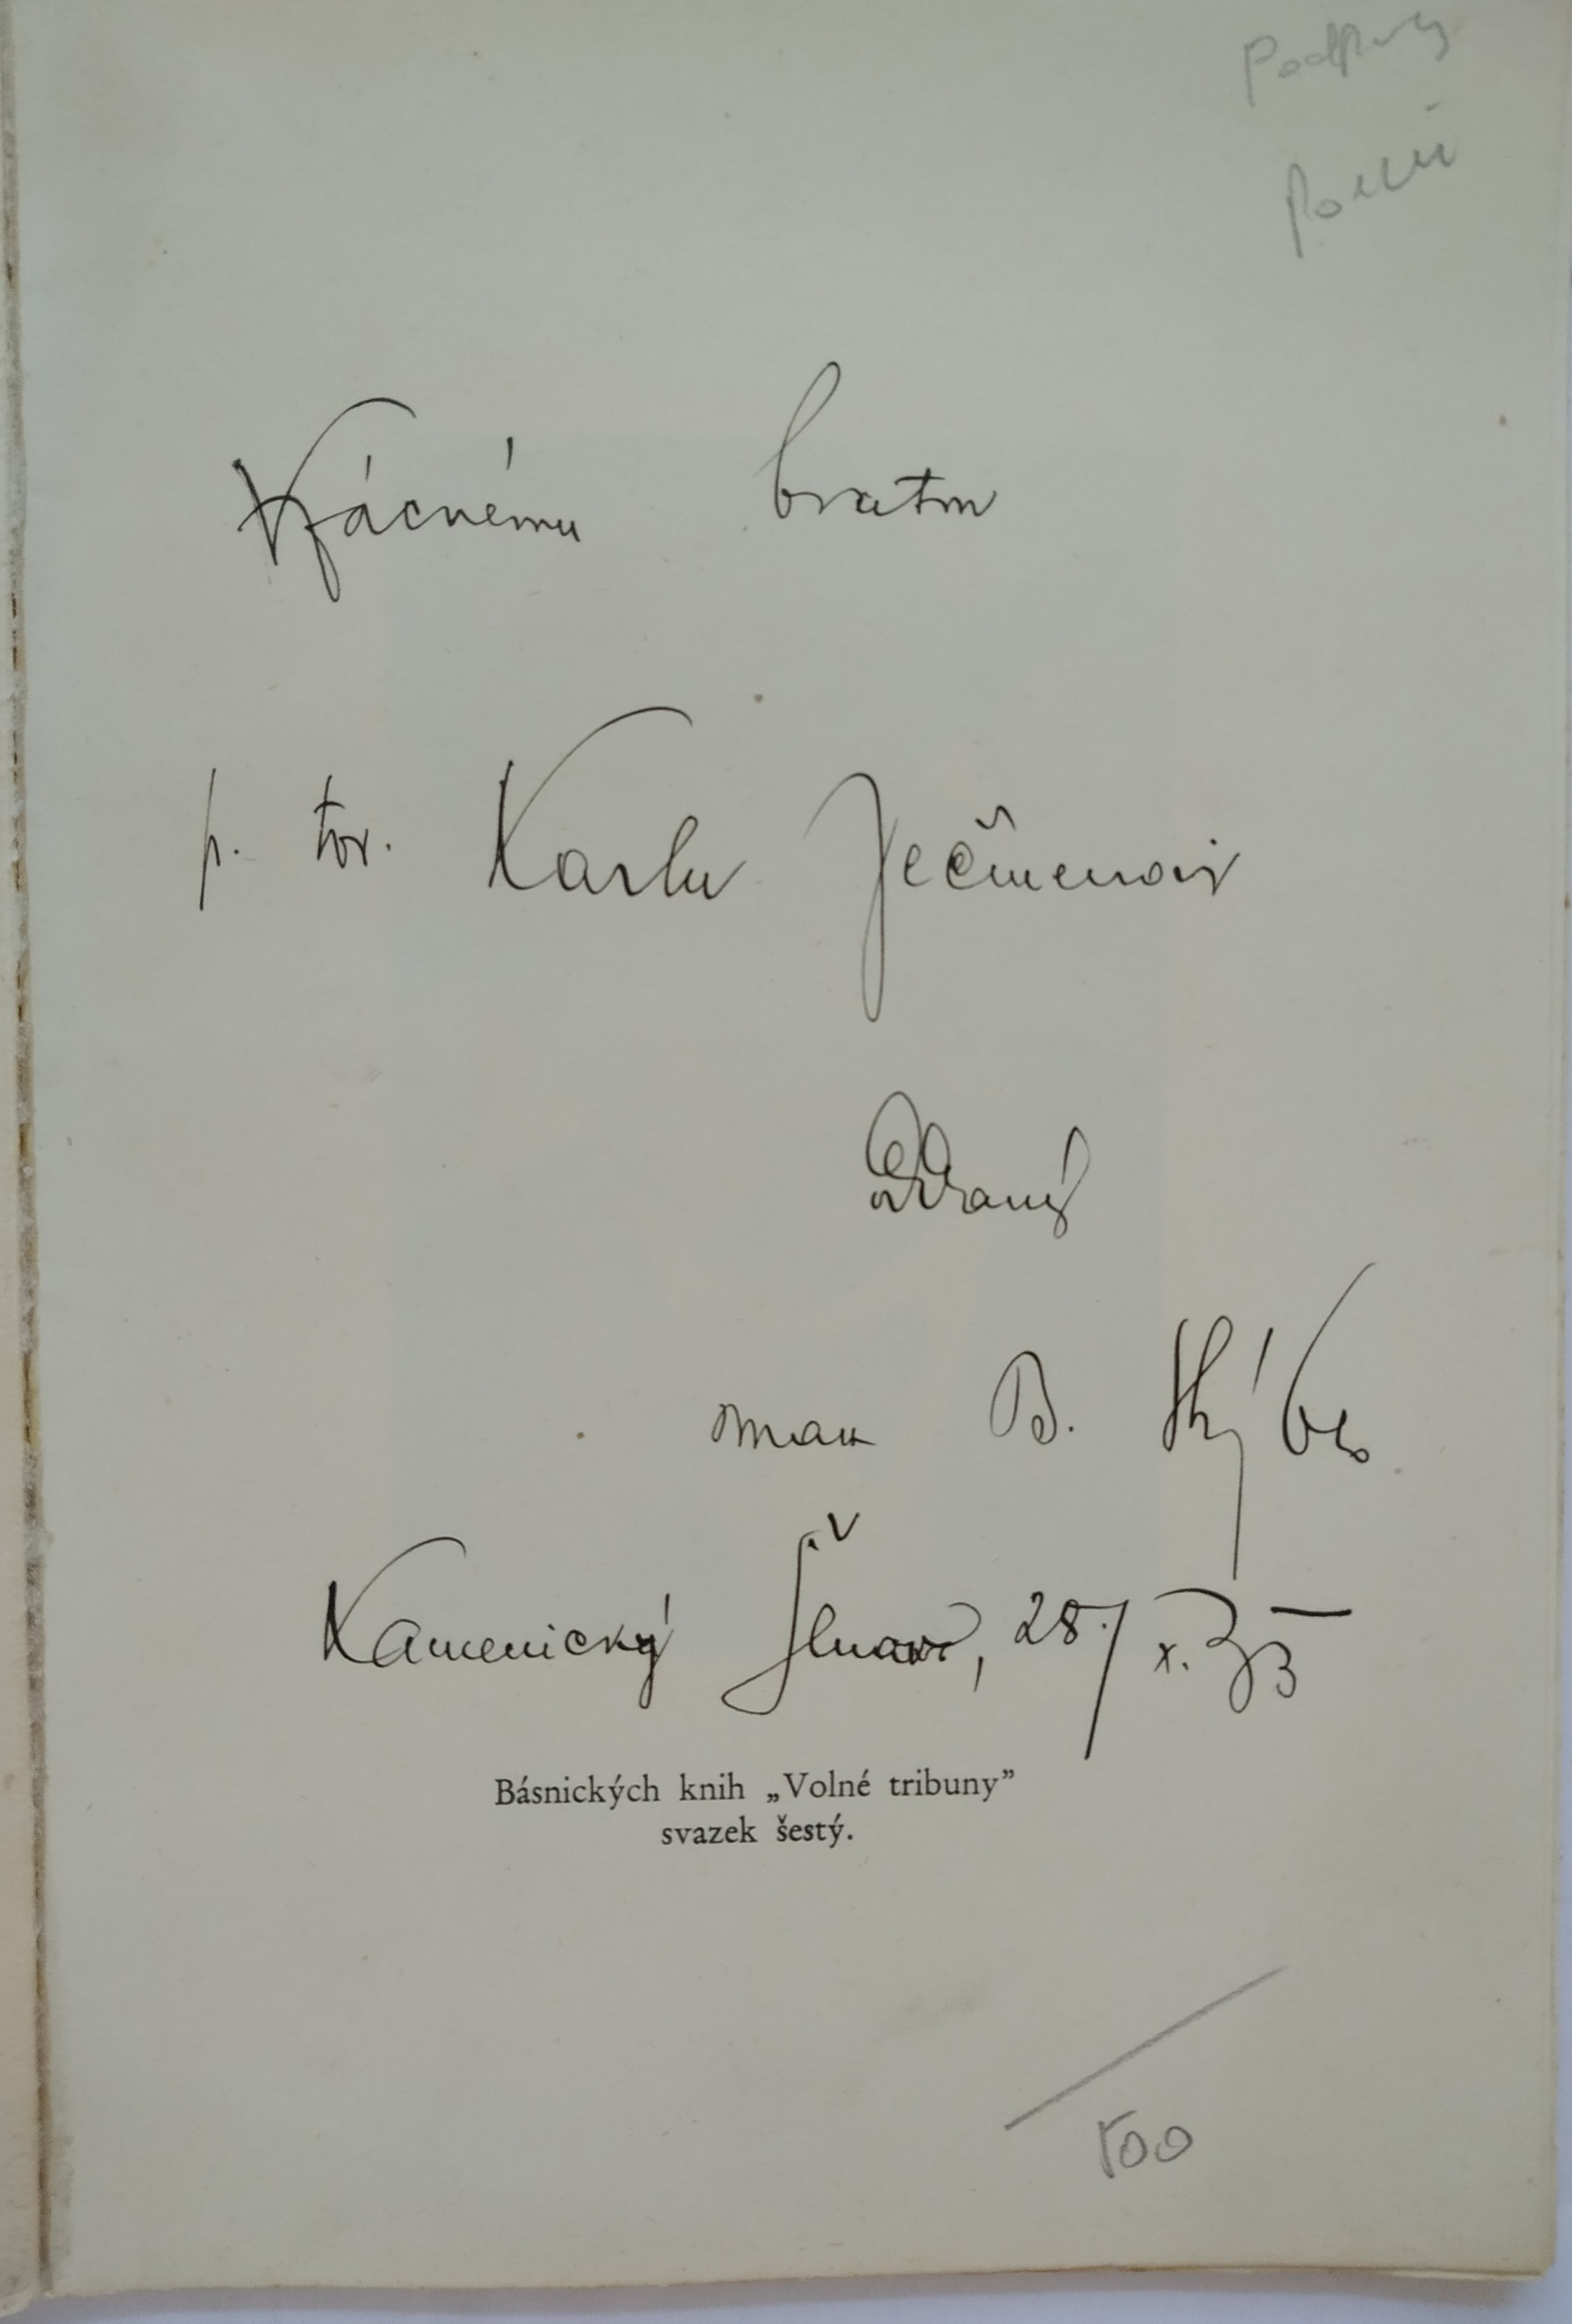 Vzácnému bratru
p. tov. Karlu Ječmenovi
oddaný
B.
Kamenický Šenov, 28./x. 35
Básnických knih „Volné tribuny”
svazek šestý.
500